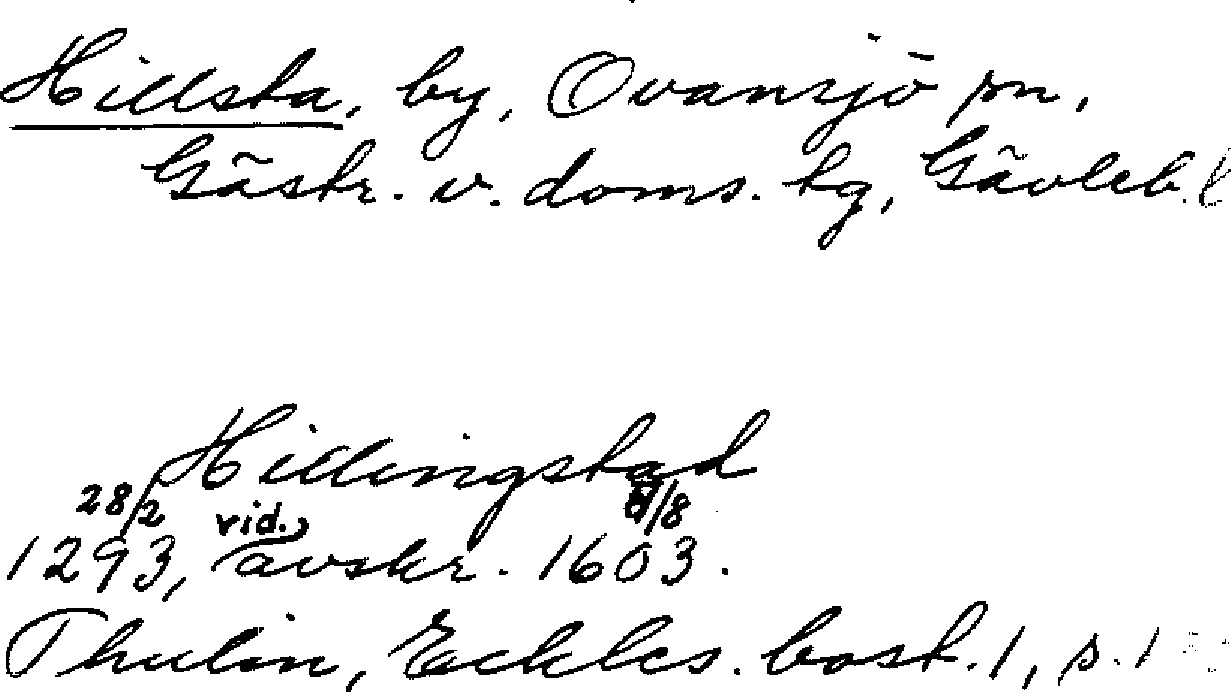 Hillsta, by, Ovansjö sn,
Gästr. v. doms. tg, Gävleb. l
Hillingstad
28/2 vid. /8
1293, avskr. 1603.
Thulin, Eckles. bost. 1, s. 1